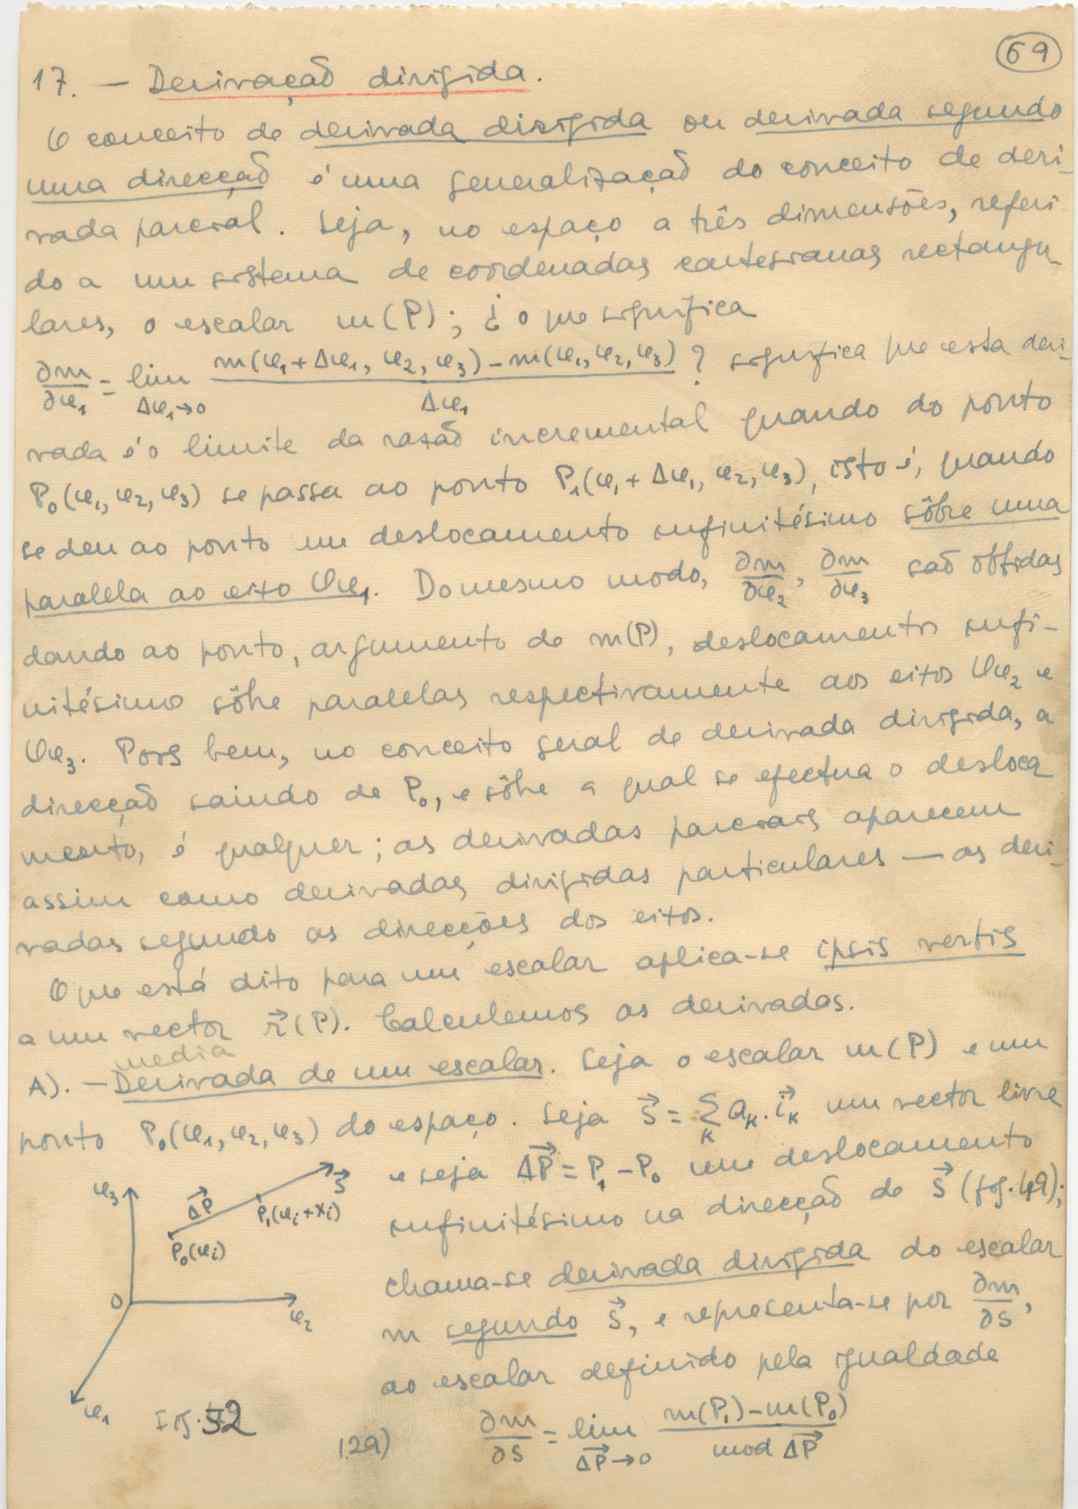 69
17. — Derivação dirigida.
O conceito de derivada dirigida ou derivada segundo
uma direcção é uma generalização do conceito de deri-
vada parcial. Seja, no espaço a três dimensões, referi
do a um sistema de coordenadas cartesianas rectangu
lares, o escalar m(P); ¿ o que significa
∂m/∂x₁ = lim Δx₁→0 (m(x₁+Δx₁, x₂, x₃) – m(x₁, x₂, x₃))/Δx₁ ? significa que esta deri-
vada é o limite da razão incremental quando do ponto
P₀(x₁, x₂, x₃) se passa ao ponto P₁(x₁+Δx₁, x₂, x₃), isto é, quando
se deu ao ponto um deslocamento infinitésimo sôbre uma
paralela ao eixo Ox₁. Do mesmo modo, ∂m/∂x₂, ∂m/∂x₃ são obtidas
dando ao ponto, argumento de m(P), deslocamentos infi-
nitésimo sôbre paralelas respectivamente aos eixos Ox₂ e
Ox₃. Pois bem, no conceito geral de derivada dirigida, a
direcção saindo de P₀, e sôbre a qual se efectua o desloca
mento, é qualquer; as derivadas parciais aparecem
assim como derivadas dirigidas particulares — as deri-
vadas segundo as direcções dos eixos.
O que está dito para um escalar aplica-se ipsis verbis
a um vector r⃗(P). Calculemos as derivadas.
media
A). — Derivada de um escalar. Seja o escalar m(P) e um
ponto P₀(x₁, x₂, x₃) do espaço. Seja s⃗ = Σₖ aₖ.i⃗ₖ um vector livre
e seja ΔP⃗ = P₁ – P₀ um deslocamento
infinitésimo na direcção de s⃗ (fig. 49);
chama-se derivada dirigida do escalar
m segundo s⃗, e representa-se por ∂m/∂s,
ao escalar definido pela igualdade
129) ∂m/∂s = lim ΔP⃗→0 (m(P₁) – m(P₀))/mod ΔP⃗
x₃
ΔP⃗
s⃗
P₁(xᵢ+Xᵢ)
P₀(xᵢ)
O
x₂
x₁
Fig. 52